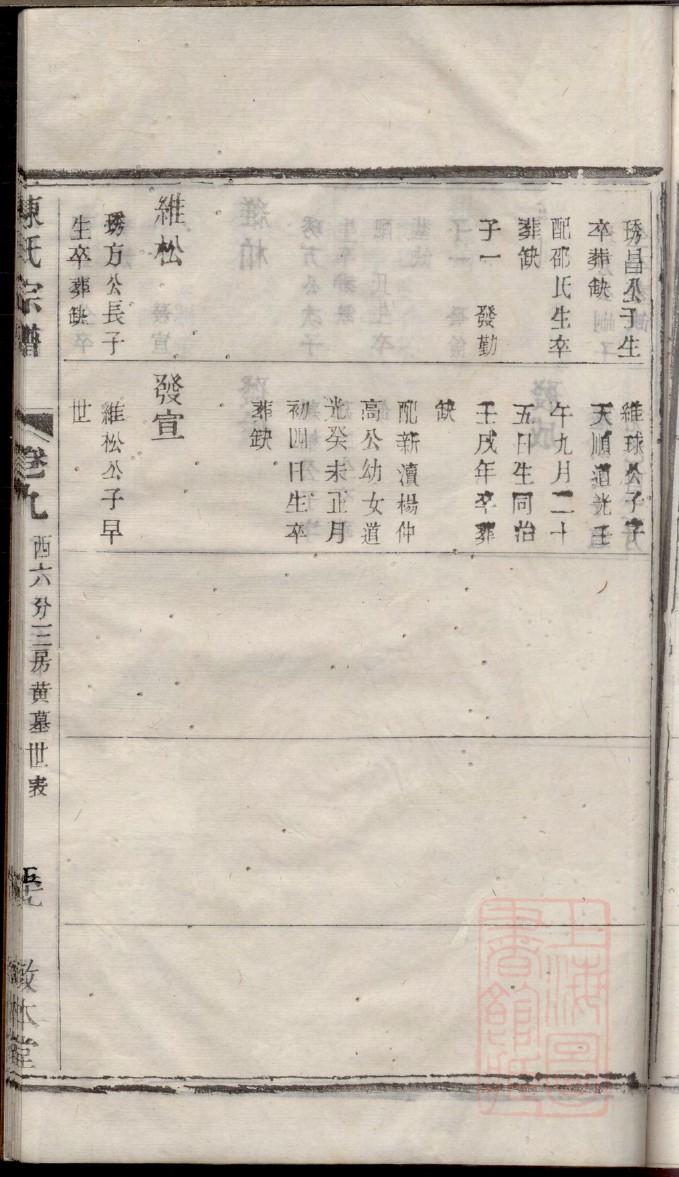 琇昌公子生
卒葬缺
配邵氏生卒
葬缺
子一　發勤
維松
琇方公長子
生卒葬缺
維球公子字
天順道光壬
午九月二十
五日生同治
壬戌年卒葬
缺
配新瀆楊仲
高公幼女道
光癸未正月
初四日生卒
葬缺
發宣
維松公子早
世
陳氏宗譜
卷九
西六分三房黄墓世表
敦本堂
上海圖書館藏